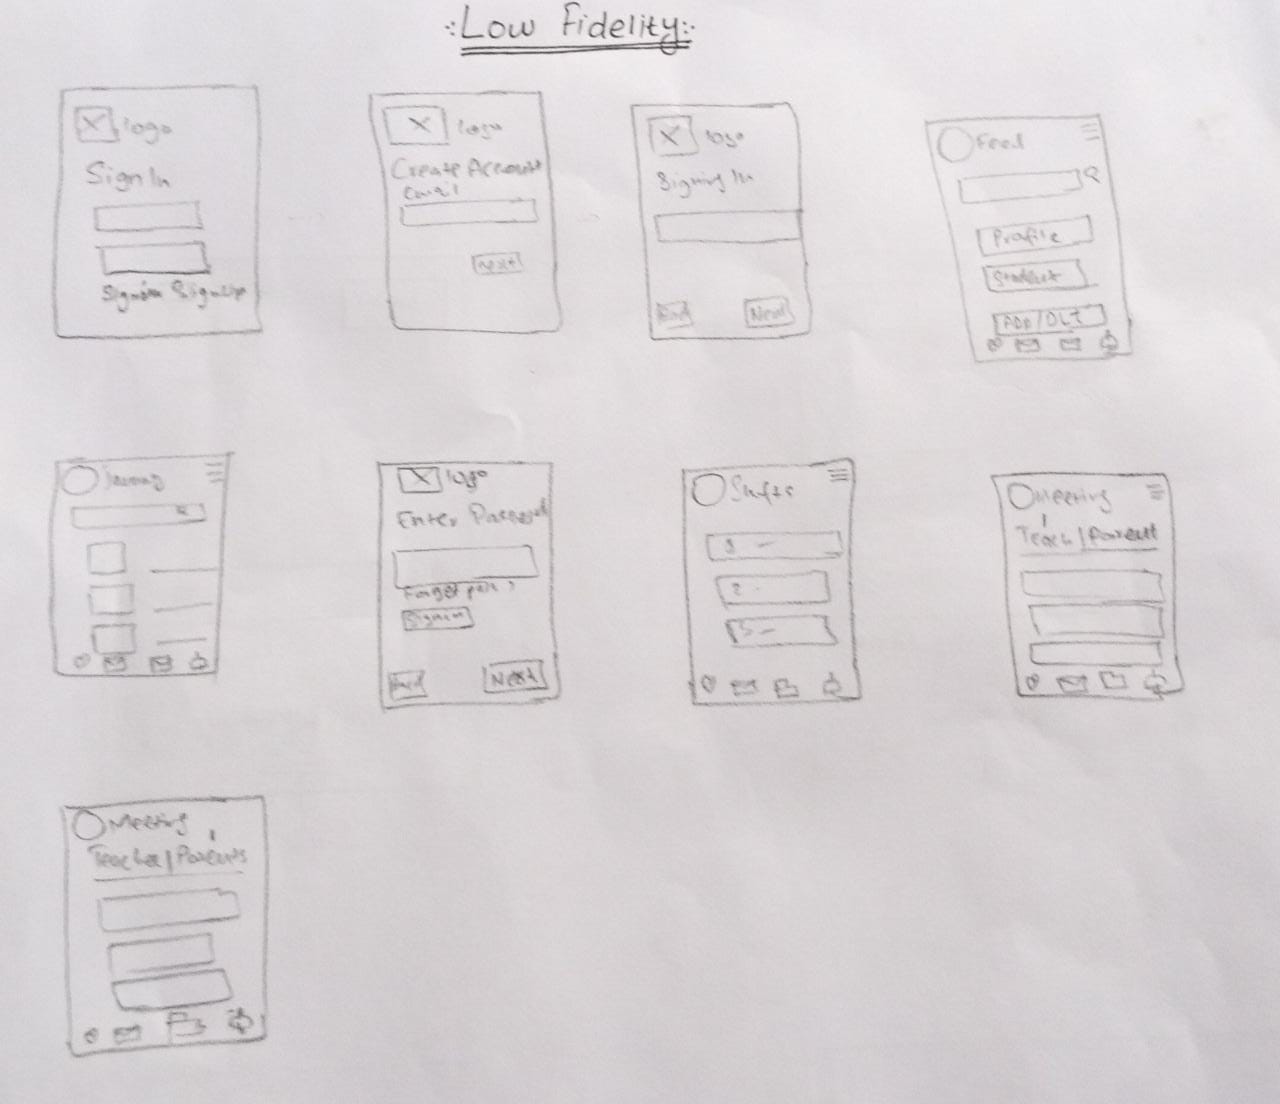 :Low Fidelity:
logo
Sign In
Signin SignUp
logo
Create Account
Email
Next
logo
Signing In
End
Next
Feed
Profile
ADD/DLT
logo
Enter Password
Forget pass?
Signin
End
Next
Shifts
Meeting
Teach/Parent
Meeting
Teacher/Parents